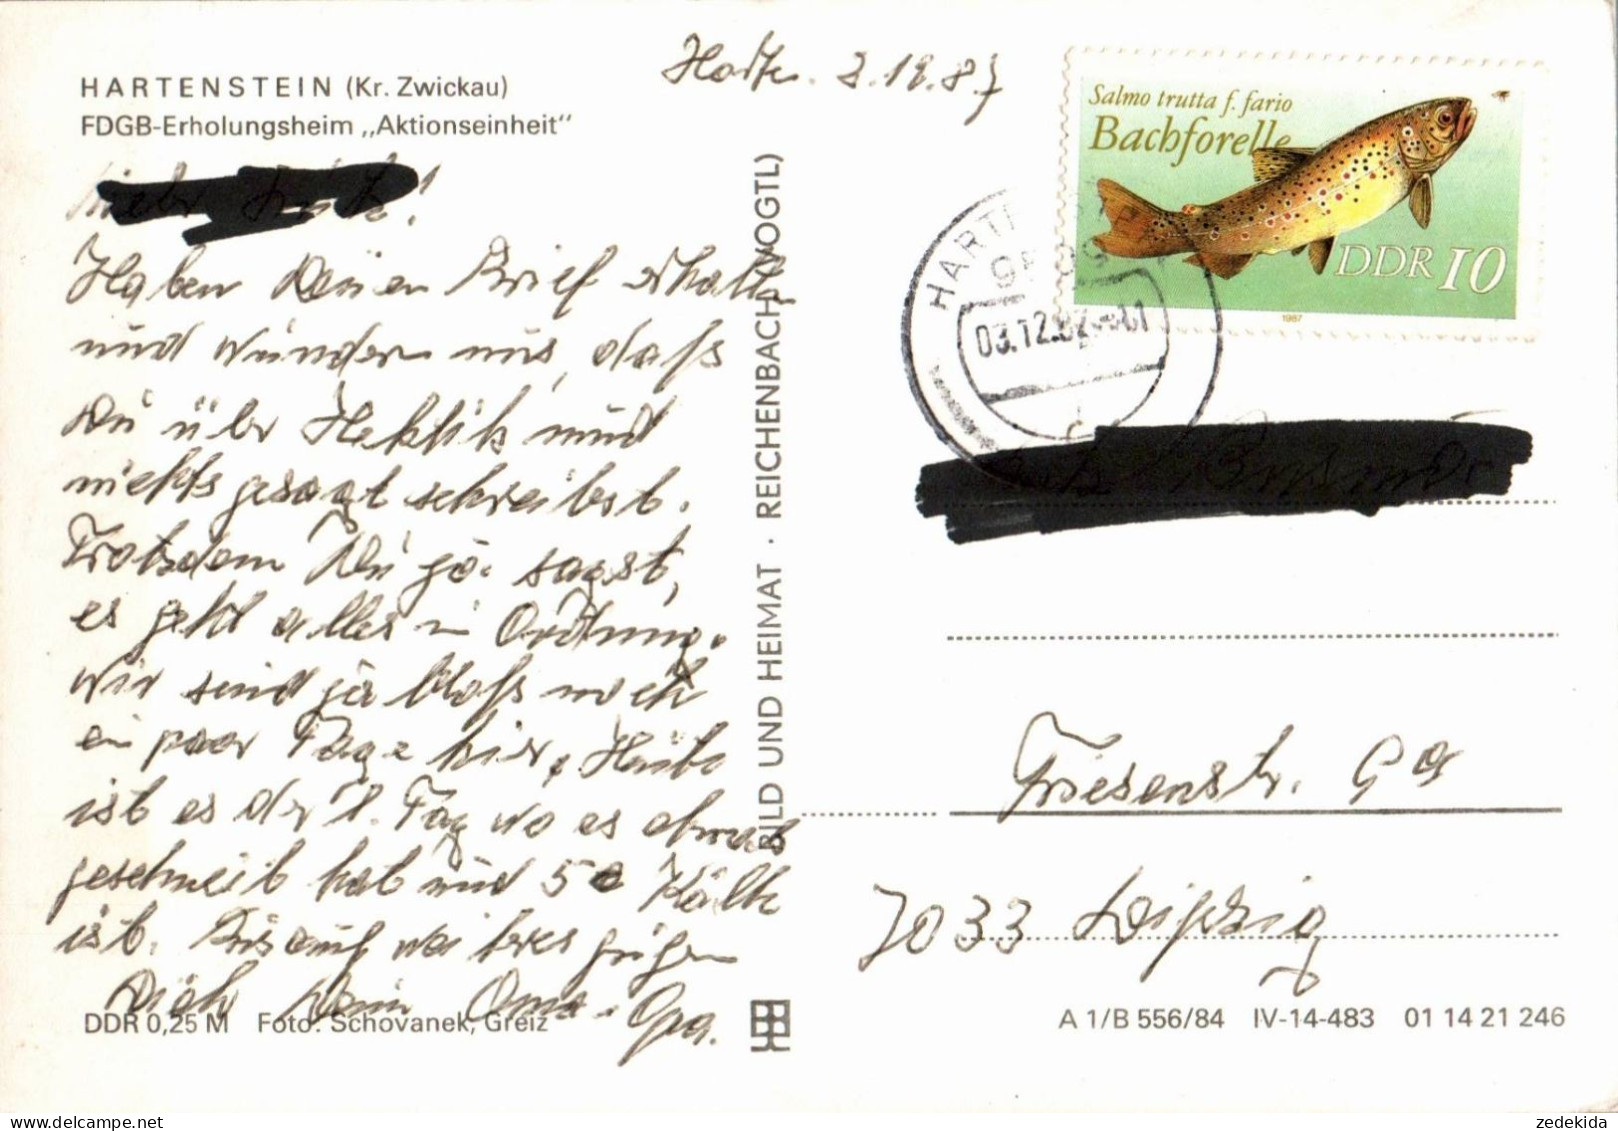 HARTENSTEIN (Kr. Zwickau)
FDGB-Erholungsheim „Aktionseinheit"
Hart. 3.12.87
Salmo trutta f. fario
Bachforelle
DDR 10
1987
HARTENSTEIN
03.12.87
Lieber
Haben Deinen Brief erhalten
und wundern uns, daß
Du über Hektik und
nichts gesagt schreibst.
Trotzdem Du ja sagst,
es geht alles in Ordnung.
Wir sind ja bloß noch
ein paar Tage hier. Heute
ist es der 1. Tag wo es etwas
geschneit hat und 5° Kälte
ist. Bis auf weiteres grüßen
Dich Deine Oma. Opa.
BILD UND HEIMAT · REICHENBACH (VOGTL)
Friesenstr.
7033 Leipzig
DDR 0,25 M Foto: Schovanek, Greiz
A 1/B 556/84 IV-14-483 01 14 21 246
zedekida